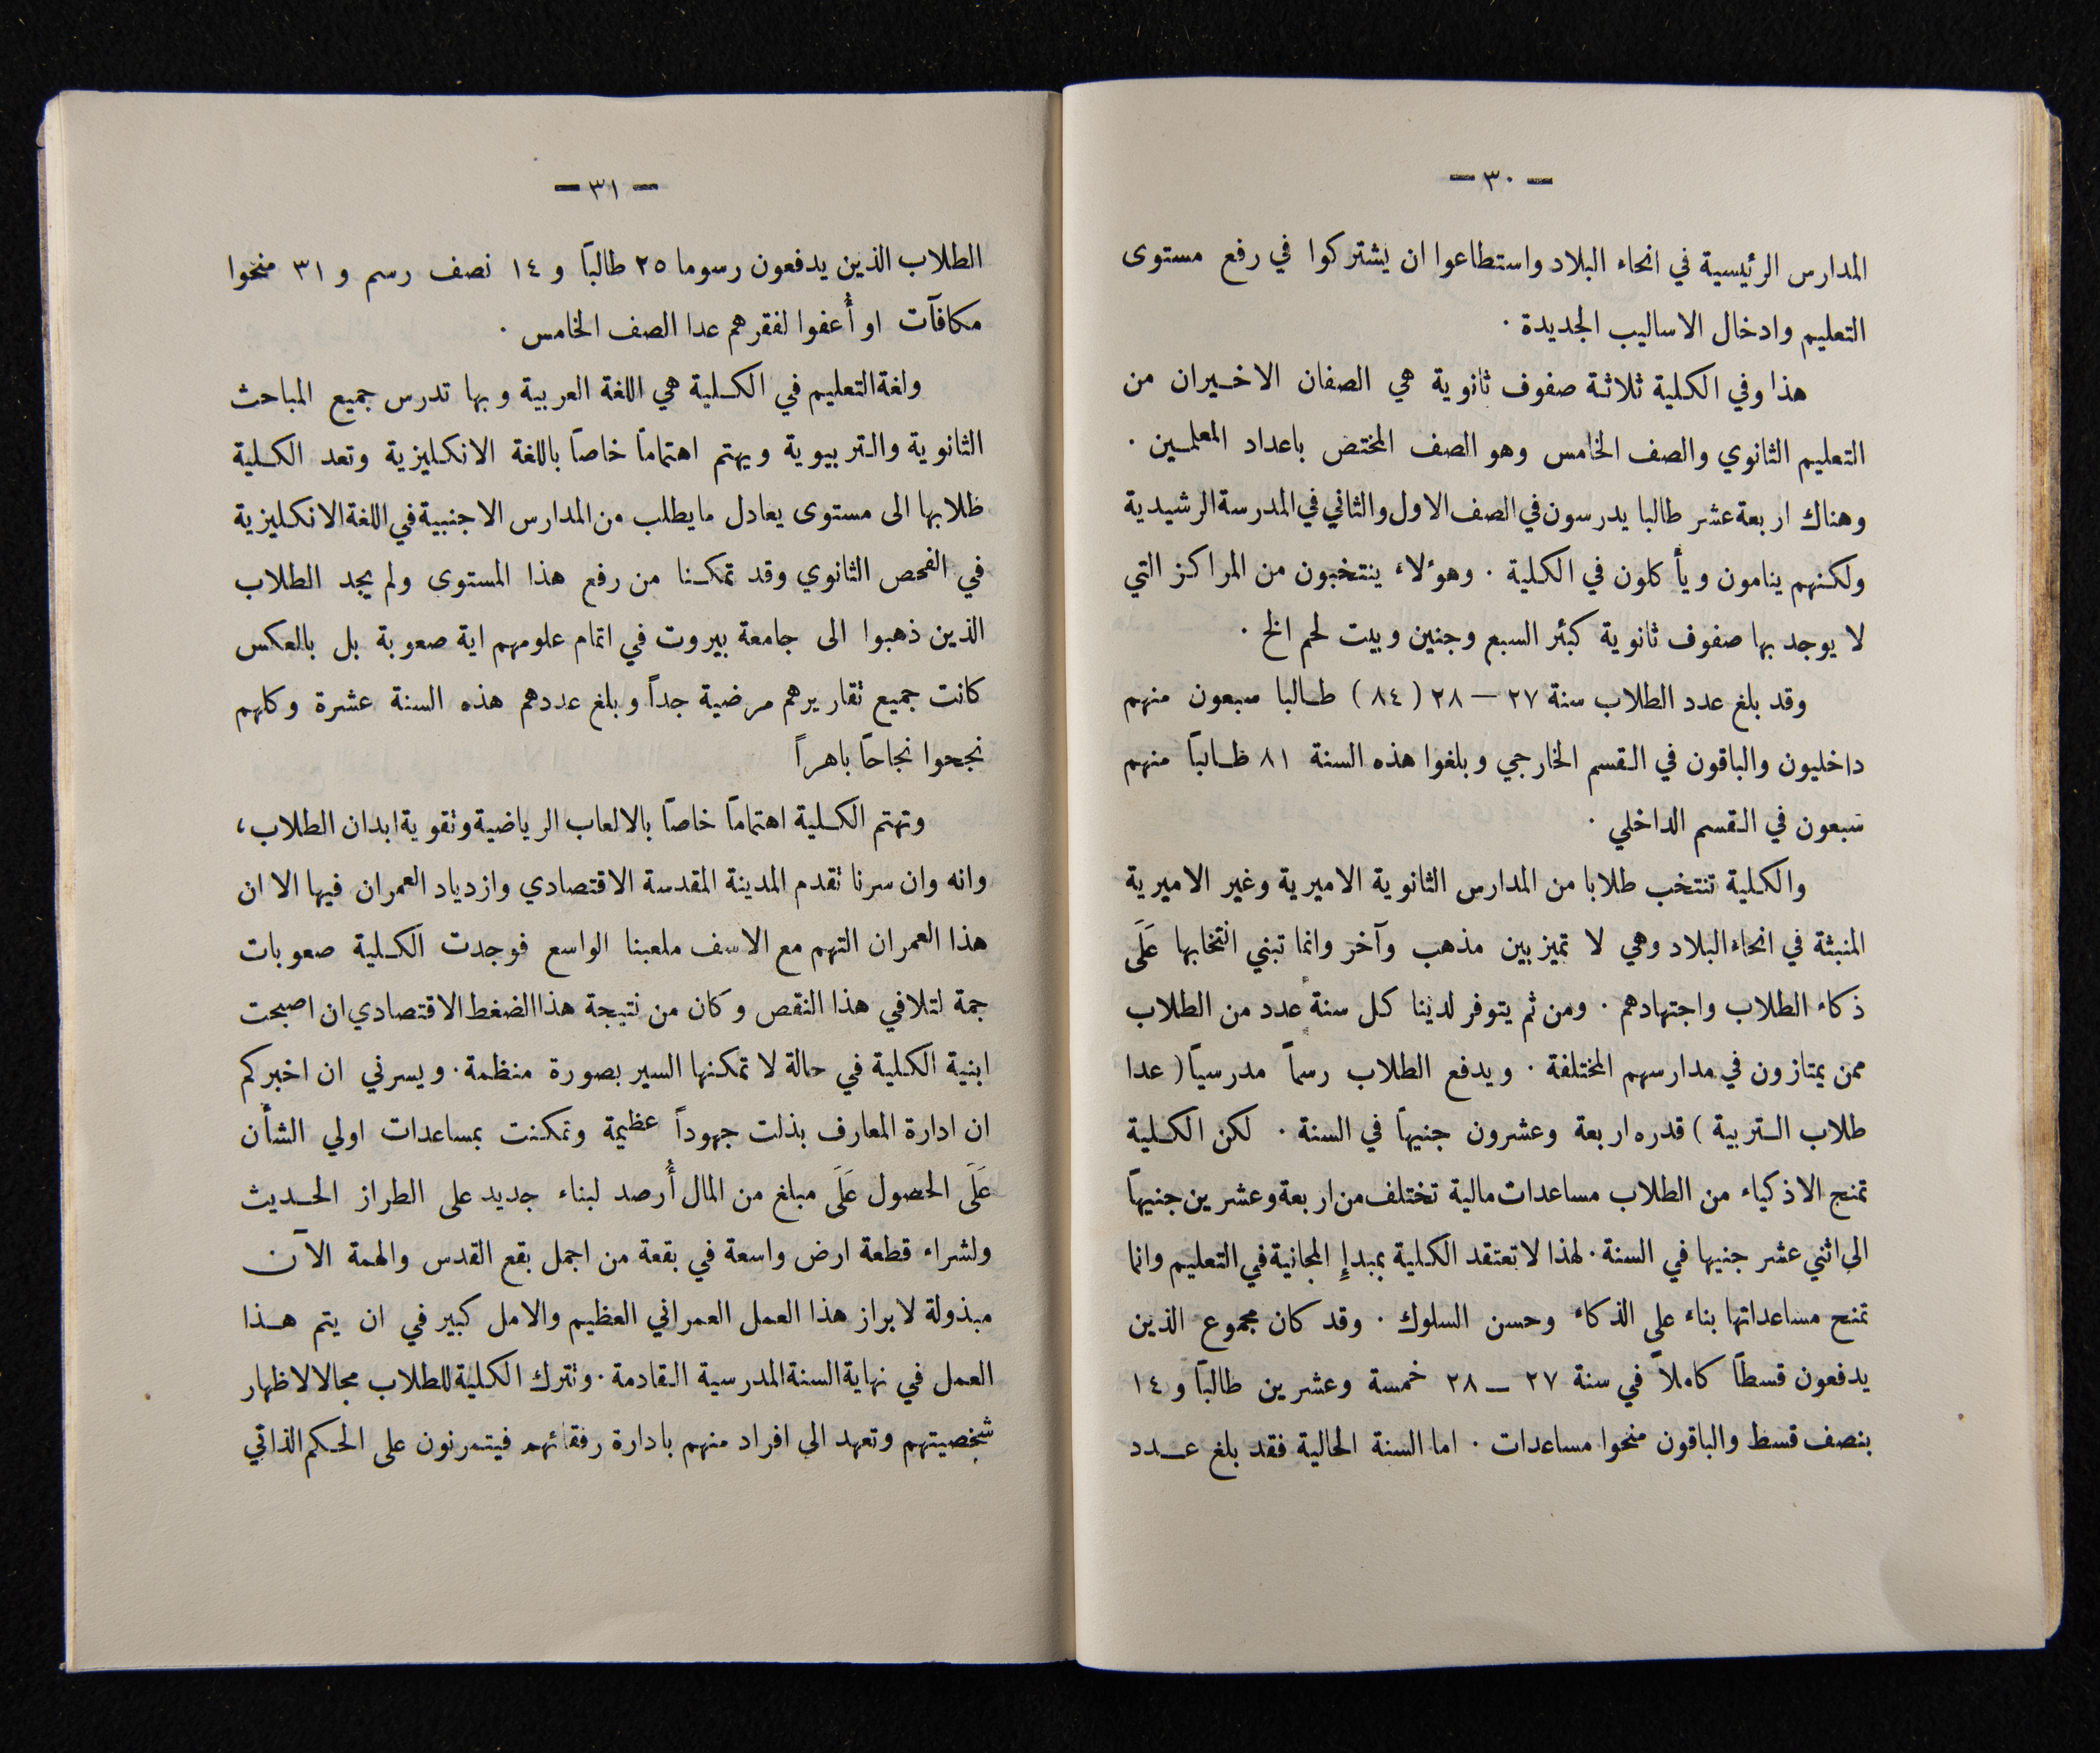 — ٣٠ —
المدارس الرئيسية في انحاء البلاد واستطاعوا ان يشتركوا في رفع مستوى
التعليم وادخال الاساليب الجديدة .
هذا وفي الكلية ثلاثة صفوف ثانوية هي الصفان الاخيران من
التعليم الثانوي والصف الخامس وهو الصف المختص باعداد المعلمين .
وهناك اربعة عشر طالبا يدرسون في الصف الاول والثاني في المدرسة الرشيدية
ولكنهم ينامون ويأكلون في الكلية . وهؤلاء ينتخبون من المراكز التي
لا يوجد بها صفوف ثانوية كبئر السبع وجنين وبيت لحم الخ .
وقد بلغ عدد الطلاب سنة ٢٧ — ٢٨ ( ٨٤ ) طالبا سبعون منهم
داخليون والباقون في القسم الخارجي وبلغوا هذه السنة ٨١ طالباً منهم
سبعون في القسم الداخلي .
والكلية تنتخب طلابا من المدارس الثانوية الاميرية وغير الاميرية
المنبثة في انحاء البلاد وهي لا تميز بين مذهب وآخر وانما تبني انتخابها عَلَى
ذكاء الطلاب واجتهادهم . ومن ثم يتوفر لدينا كل سنة عدد من الطلاب
ممن يمتازون في مدارسهم المختلفة . ويدفع الطلاب رسماً مدرسياً ( عدا
طلاب التربية ) قدره اربعة وعشرون جنيهاً في السنة . لكن الكلية
تمنح الاذكياء من الطلاب مساعدات مالية تختلف من اربعة وعشرين جنيهاً
الى اثني عشر جنيها في السنة . لهذا لا تعتقد الكلية بمبدإِ المجانية في التعليم وانما
تمنح مساعداتها بناء على الذكاء وحسن السلوك . وقد كان مجموع الذين
يدفعون قسطاً كاملاً في سنة ٢٧ — ٢٨ خمسة وعشرين طالباً و ١٤
بنصف قسط والباقون منحوا مساعدات . اما السنة الحالية فقد بلغ عدد
— ٣١ —
الطلاب الذين يدفعون رسوما ٢٥ طالباً و ١٤ نصف رسم و ٣١ منحوا
مكافآت او أُعفوا لفقرهم عدا الصف الخامس .
ولغة التعليم في الكلية هي اللغة العربية وبها تدرس جميع المباحث
الثانوية والتربيوية ويهتم اهتماماً خاصاً باللغة الانكليزية وتعد الكلية
طلابها الى مستوى يعادل ما يطلب من المدارس الاجنبية في اللغة الانكليزية
في الفحص الثانوي وقد تمكنا من رفع هذا المستوى ولم يجد الطلاب
الذين ذهبوا الى جامعة بيروت في اتمام علومهم اية صعوبة بل بالعكس
كانت جميع تقاريرهم مرضية جداً وبلغ عددهم هذه السنة عشرة وكلهم
نجحوا نجاحاً باهراً
وتهتم الكلية اهتماماً خاصاً بالالعاب الرياضية وتقوية ابدان الطلاب ،
وانه وان سرنا تقدم المدينة المقدسة الاقتصادي وازدياد العمران فيها الا ان
هذا العمران التهم مع الاسف ملعبنا الواسع فوجدت الكلية صعوبات
جمة لتلافي هذا النقص وكان من نتيجة هذا الضغط الاقتصادي ان اصبحت
ابنية الكلية في حالة لا تمكنها السير بصورة منظمة . ويسرني ان اخبركم
ان ادارة المعارف بذلت جهوداً عظيمة وتمكنت بمساعدات اولي الشأن
عَلَى الحصول عَلَى مبلغ من المال أُرصد لبناء جديد على الطراز الحديث
ولشراء قطعة ارض واسعة في بقعة من اجمل بقع القدس والهمة الآن
مبذولة لابراز هذا العمل العمراني العظيم والامل كبير في ان يتم هذا
العمل في نهاية السنة المدرسية القادمة . وتترك الكلية للطلاب مجالا لاظهار
شخصيتهم وتعهد الى افراد منهم بادارة رفقائهم فيتمرنون على الحكم الذاتي